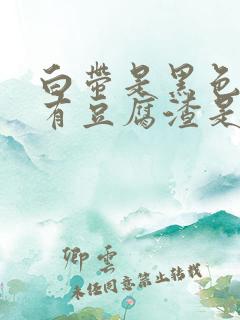 白带是黑色
有豆腐渣是
卿云
未经同意禁止转载